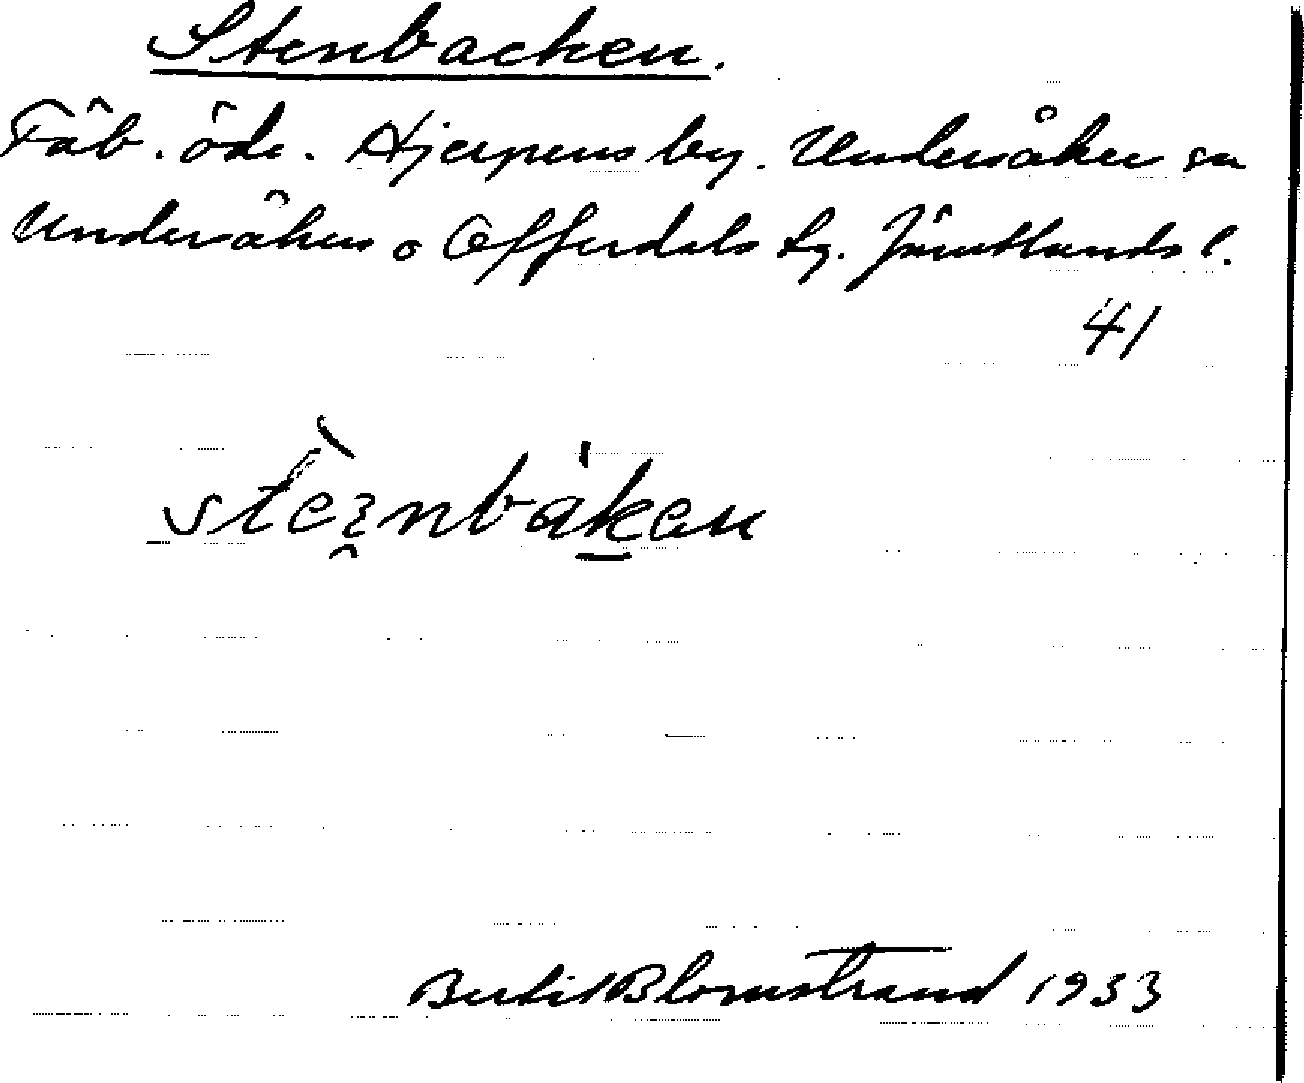 Stenbacken.
Fäb. öde. Hjerpens by. Undersåker sn
Undersåkers o Offerdals tg. Jämtlands l.
41
Bertil Blomstrand 1933